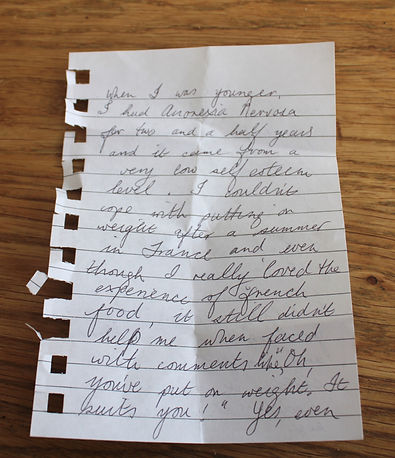 when I was younger,
I had Anorexia Nervosa
for two and a half years
and it came from a
very low self esteem
level. I couldn't
cope with putting on
weight after a summer
in France and even
though I really loved the
experience of French
food it still didn't
help me when faced
with comments like "Oh,
you've put on weight. It
suits you!" Yes, even